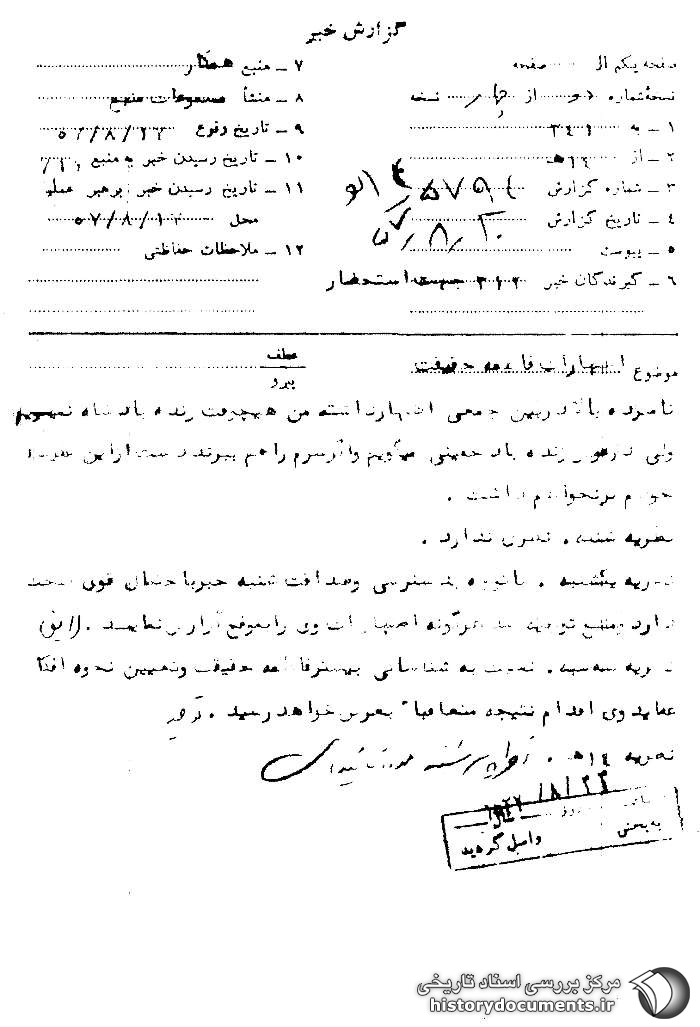 گزارش خبر
صفحه یکم از صفحه
نسخه شماره دو از چهار نسخه
۱ ـ به ۳۴۱
۲ ـ از ۱۴ﻫ
۳ ـ شماره گزارش
۴ ـ تاریخ گزارش
۵ ـ پیوست
۶ ـ گیرندگان خبر ۳۱۲ جهت استحضار
۷ ـ منبع همکار
۸ ـ منشأ مسموعات منبع
۹ ـ تاریخ وقوع
۱۰ ـ تاریخ رسیدن خبر به منبع
۱۱ ـ تاریخ رسیدن خبر برهبر عملیات
محل
۱۲ ـ ملاحظات حفاظتی
موضوع اظهارات فاطمه حقیقت
عطف
پیرو
نامبرده بالا در بین جمعی اظهار داشته من هیچوقت زنده باد شاه نمیگویم
ولی در عوض زنده باد خمینی میگویم و اگر سرم را هم ببرند دست از این عقیده
خودم برنخواهم داشت .
نظریه شنبه . نظری ندارد .
نظریه یکشنبه . با توجه به دسترسی و صداقت شنبه خبر باحتمال قوی صحت
دارد بمنبع توجیه شد هرگونه اظهارات وی را بموقع گزارش نماید .
نظریه سه‌شنبه . نسبت به شناسائی بیشتر فاطمه حقیقت و تعیین نحوه افکار
عقاید وی اقدام نتیجه متعاقباً بعرض خواهد رسید .
نظریه ۱۴ﻫ .
به بخش
واصل گردید
مرکز بررسی اسناد تاریخی
historydocuments.ir